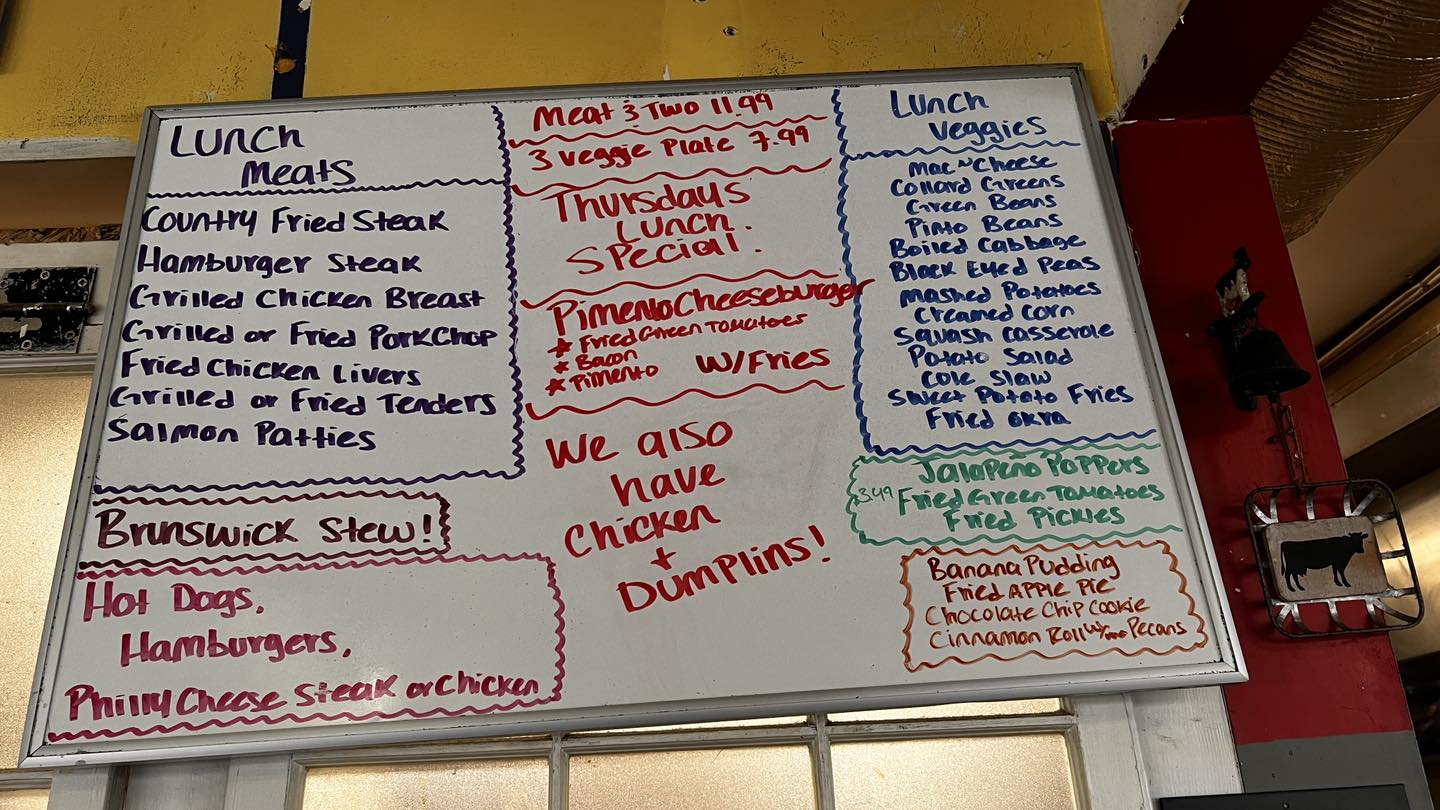 Lunch
Meats
Country Fried Steak
Hamburger Steak
Grilled Chicken Breast
Grilled or Fried PorkChop
Fried Chicken Livers
Grilled or Fried Tenders
Salmon Patties
Brunswick Stew!
Hot Dogs,
Hamburgers,
Philly Cheese Steak or Chicken
Meat & Two 11.99
3 Veggie Plate 7.99
Thursdays
Lunch.
Special.
Pimento Cheeseburger
* Fried Green Tomatoes
* Bacon
* Pimento
W/Fries
We also
have
Chicken
+
Dumplins!
Lunch
Veggies
Mac~n~Cheese
Collard Greens
Green Beans
Pinto Beans
Boiled Cabbage
Black Eyed Peas
Mashed Potatoes
Creamed Corn
Squash Casserole
Potato Salad
Cole Slaw
Sweet Potato Fries
Fried Okra
Jalapeño Poppers
3.49 Fried Green Tomatoes
Fried Pickles
Banana Pudding
Fried Apple Pie
Chocolate Chip Cookie
Cinnamon Roll w/ Pecans